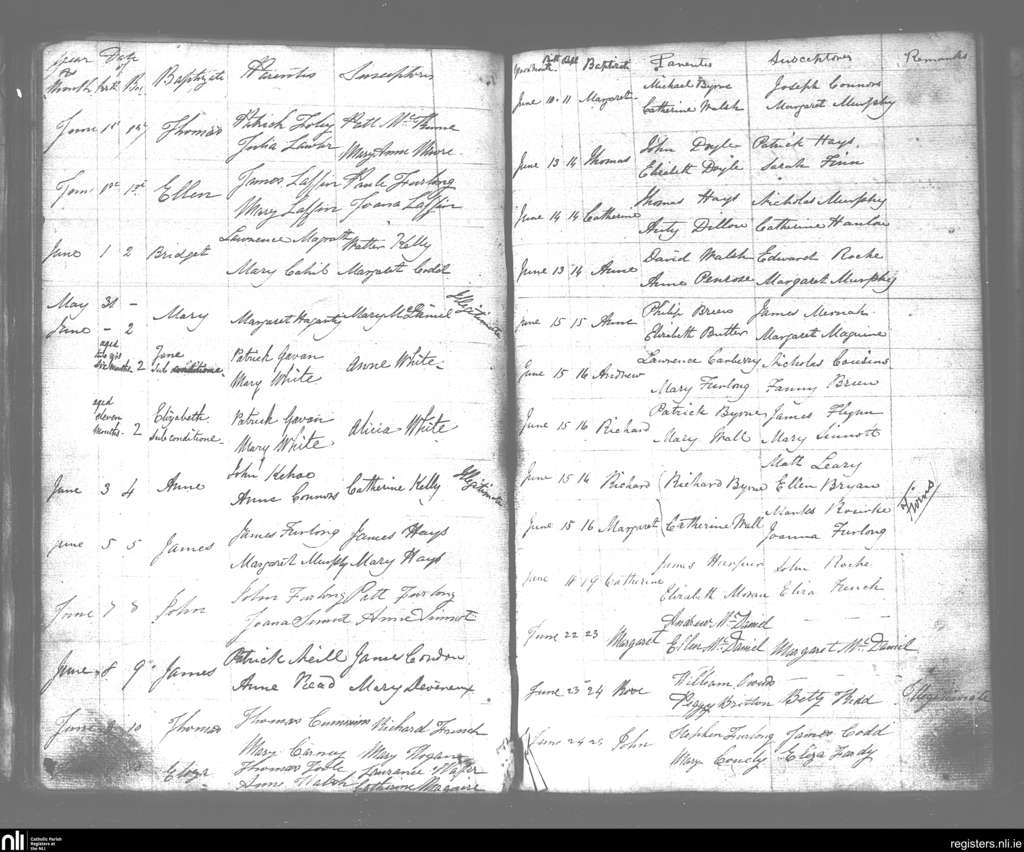 year Date
Per of
Month birth Bap Baptizate Parentes Susceptores
June 1st 1st Thomas Patrick Foley
Julia Lawler Mary Anne Moore
June 1st 1st Ellen James Laffin Paule Furlong
Mary Laffin Joana Laffin
June 1 2 Bridget Lawrence Magrath Walter Kelly
Mary Cahil Margaret Codd
May 31 -
June - 2 Mary Margaret Hagarty Mary McDaniel Illegitimate
aged
two yrs
six months 2 Jane Patrick Gavan
sub conditione Mary White Anne White
aged
eleven
months 2 Elizabeth Patrick Gavan
sub conditione Mary White Alicia White
June 3 4 Anne John Kehoe
Anne Connors Catherine Kelly Illegitimate
June 5 5 James James Furlong James Hays
Margaret Murphy Mary Hays
June 7 8 John John Furlong Patt Furlong
Joana Sinnot Anne Sinnot
June 8 9 James Patrick Neill James Cordon
Anne Read Mary Devereux
June 10 Thomas Thomas Richard French
Mary Carney Mary Hogan
Eliza Thomas Toole Laurance Walter
Anne Walsh Catherine Maguire
Year Month Birth Bapt Baptizati Parentes Susceptores Remarks
June 10 11 Margaret Michael Byrne Joseph Connors
Catherine Walsh Margaret Murphy
June 13 14 Thomas John Doyle Patrick Hays
Elizabeth Doyle Sarah Finn
June 14 14 Catherine Thomas Hays Nicholas Murphy
Dillon Catherine Hanlon
June 13 14 Anne David Walsh Edward Roche
Anne Penrose Margaret Murphy
June 15 15 Anne Philip Breen James
Elizabeth Butler Margaret Maguire
June 15 16 Andrew Lawrence Carberry Nicholas Cousins
Mary Furlong Fanny Breen
June 15 16 Richard Patrick Byrne James Flynn
Mary Wall Mary Sinnott
June 15 16 Richard Richard Byrne Matt Leary
Ellen Bryan
June 15 16 Margaret Catherine Wall Rourke
Joanna Furlong Twins
June 19 Catherine James John Roche
Elizabeth Moran Eliza French
June 22 23 Margaret Andrew McDaniel
Ellen McDaniel Margaret McDaniel
June 23 24 Rose William Owens
Peggy Britton Betty Redd Illegitimate
June 24 25 John Stephen Furlong James Codd
Mary Eliza Fardy
nli Catholic Parish
Registers at
the NLI
registers.nli.ie